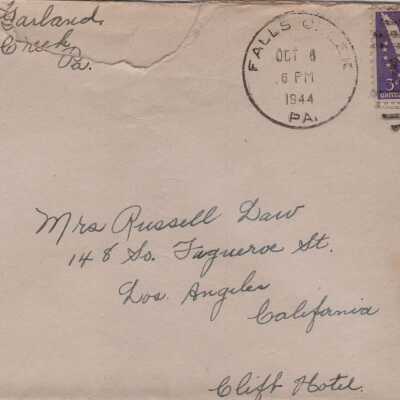 Garland
Creek,
Pa.
FALLS CREEK
OCT 6
6 PM
1944
PA.
3¢
Mrs Russell Daw
148 So. Fugueroe St.
Los Angeles
California
Clift Hotel.